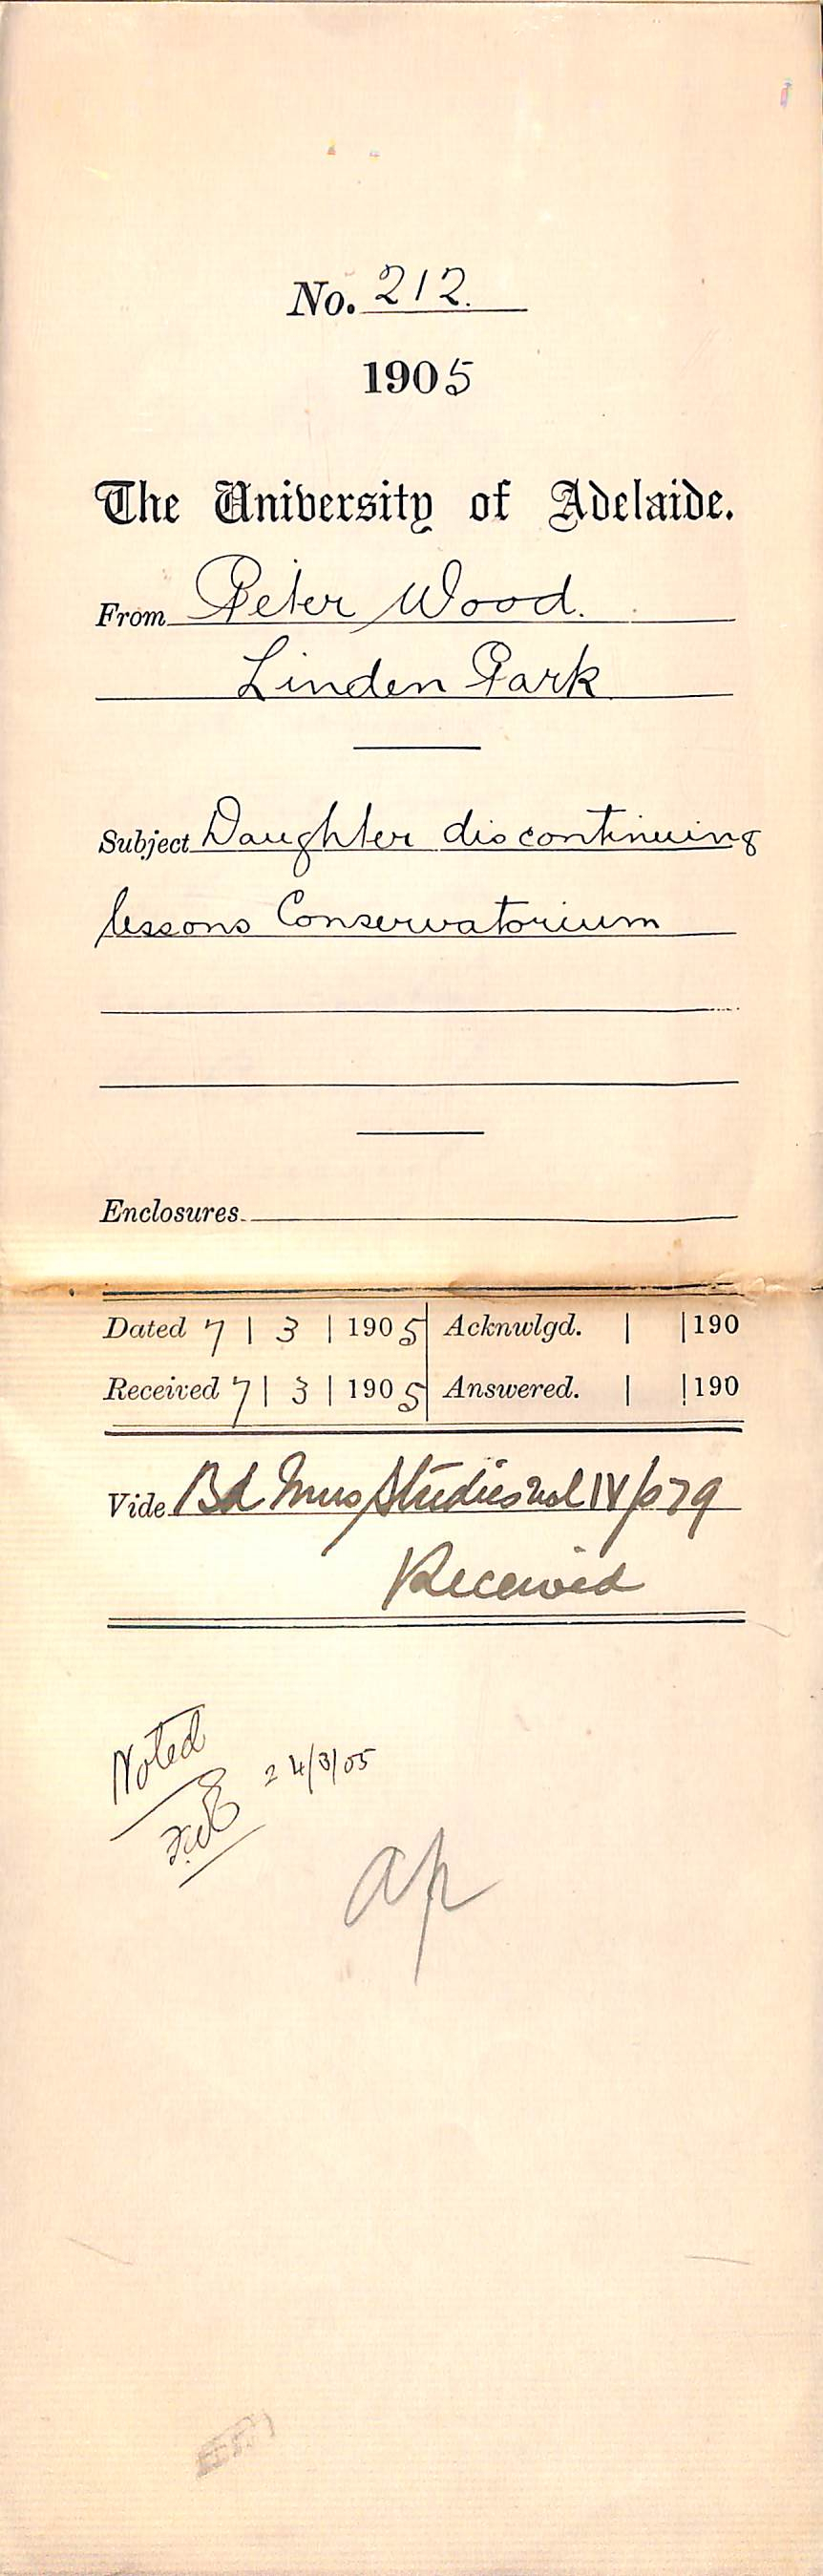 No. 212.
1905
The University of Adelaide.
From Peter Wood.
Linden Park
Subject Daughter discontinuing
lessons Conservatorium
Enclosures
Dated 7 | 3 | 1905 Acknwlgd. | | 190
Received 7 | 3 | 1905 Answered. | | 190
Vide Bd Mus Studies vol IV/p79
Received
Noted
24/3/05
ap